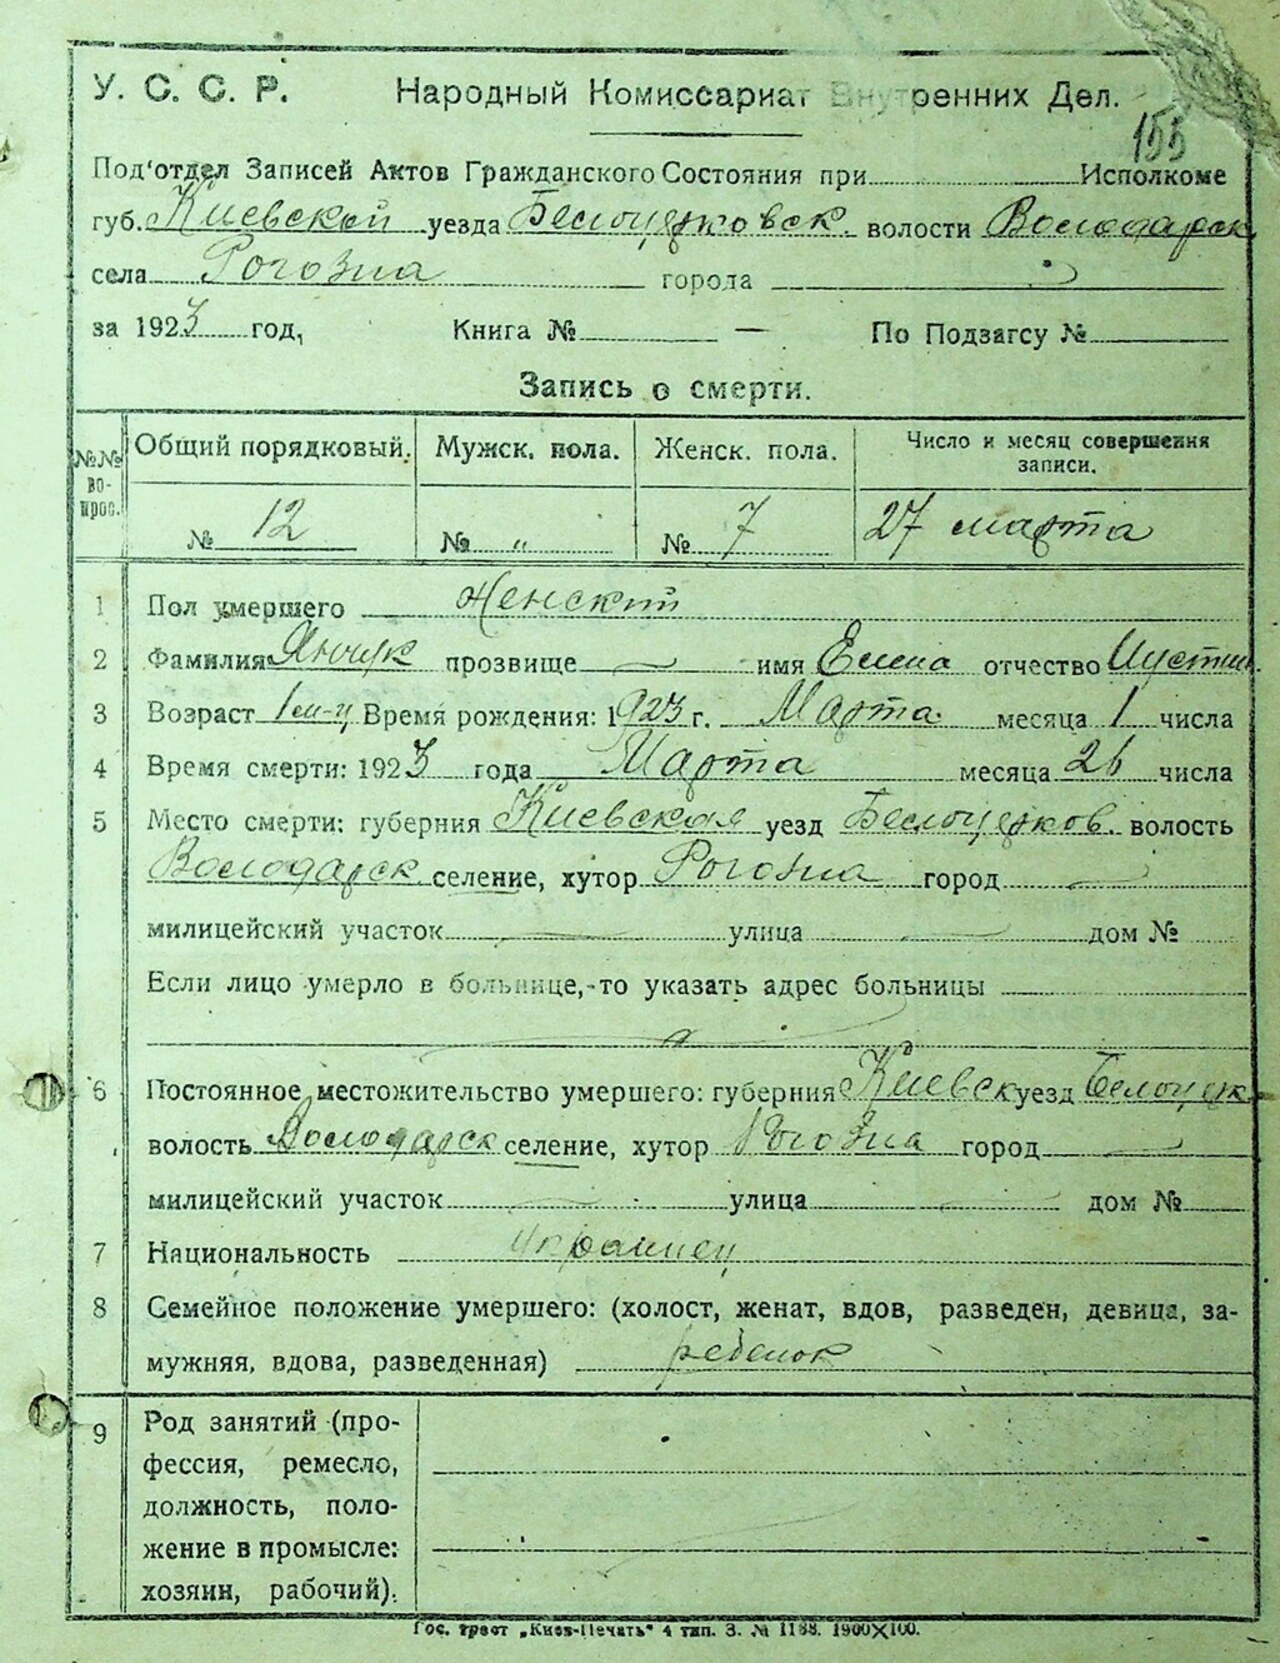 У. С. С. Р. Народный Комиссариат Внутренних Дел.
155
Под'отдел Записей Актов Гражданского Состояния при Исполкоме
губ. Киевской уезда Белоцерковск. волости Володарск
села Рогозна города
за 1923 год, Книга № — По Подзагсу №
Запись о смерти.
№№ во- прос. Общий порядковый. Мужск. пола. Женск. пола. Число и месяц совершения записи.
№ 12 № „ № 7 27 марта
1 Пол умершего Женский
2 Фамилия Янчук прозвище — имя Елена отчество Иустин.
3 Возраст 1 м-ц Время рождения: 1923 г. Марта месяца 1 числа
4 Время смерти: 1923 года Марта месяца 26 числа
5 Место смерти: губерния Киевская уезд Белоцерков. волость
Володарск. селение, хутор Рогозна город —
милицейский участок — улица — дом №
Если лицо умерло в больнице,-то указать адрес больницы
6 Постоянное местожительство умершего: губерния Киевск уезд Белоцерк.
волость Володарск селение, хутор Рогозна город —
милицейский участок — улица — дом №
7 Национальность Украинец
8 Семейное положение умершего: (холост, женат, вдов, разведен, девица, за-
мужняя, вдова, разведенная) ребенок
9 Род занятий (про-
фессия, ремесло,
должность, поло-
жение в промысле:
хозяин, рабочий).
Гос. трест „Киев-Печать" 4 тип. З. № 1188. 1900×100.